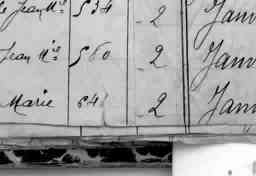 Jean M.el 534 2 Janv
Jean M.el 560 2 Janv
Marie 64 2 Janv